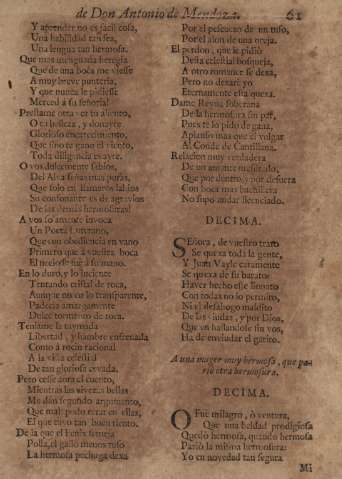 de Don Antonio de Mendoza. 61
Y aprender no es facil cosa,
Una habilidad tan fea,
Una lengua tan hermosa.
Que mas menguada heregia
Que de una boca me viesse
A muy breve punteria,
Y que nunca le pidiesse
Merced à su señoria!
Prestame otra vez tu aliento,
O es belleza, y donayre
Glorioso encarecimiento,
Que sino te gano el viento,
Toda diligencia es ayre.
O vos dulcemente labios,
Del Alva señas mas puras,
Que solo en llamaros labios
Su consonante es de agravios
De las demàs hermosuras!
A vos so amente invoca
Un Poeta Lusitano,
Que con obediencia en vano
Primero que à vuestra boca
El hechose fue à su mano.
En lo duro, y lo luciente
Tentando cristal de roca,
Aunque no en lo transparente,
Padecia amargamente
Dulce tormento de toca.
Tenìame la taymada
Libertad, y hambre enfrenada
Como à rocin racional
A la vista celestial
De tan gloriosa cevada.
Pero cesse aora el cuento,
Mientras las vivezas bellas
Me dàn segundo argumento,
Que mal podrà errar en ellas,
El que tuvo tan buen tiento.
De la que el Fenix semeja
Polla, el gallo menos ruso
La hermosa pechuga dexa
Por el pescuezo de un ruso,
Por el alon de una oreja.
El perdon, que le pidiò
Desta celestial bosqueja,
A otro romance se dexa,
Pero no dexarà yo
Eternamente esta quexa.
Dame Reyna soberana
De la hermosura sin par,
Pues te lo pido de gana,
Aplauso mas que el vulgar
Al Conde de Cantillana.
Relacion muy verdadera
De un amante mesurado,
Que por dentro, y por defuera
Con boca mas bachillera
No supo andar licenciado.
DECIMA.
Señora, de vuestro trato
Se quexa toda la gente,
Y Juan Vayle caramente
Se quexa de su barato:
Haver hecho esse
Con todas no lo permito,
Ni el desahogo maldito
De las viudas, y por Dios,
Que en hallandose sin vos,
Ha de enviudar el garito.
A una muger muy hermosa, que pa-
riò otra hermosura.
DECIMA.
O Fuè milagro, ò ventura,
Que una beldad prodigiosa
Quedò hermosa, quando hermosa
Pariò la misma hermosura:
Yo en novedad tan segura
Mi